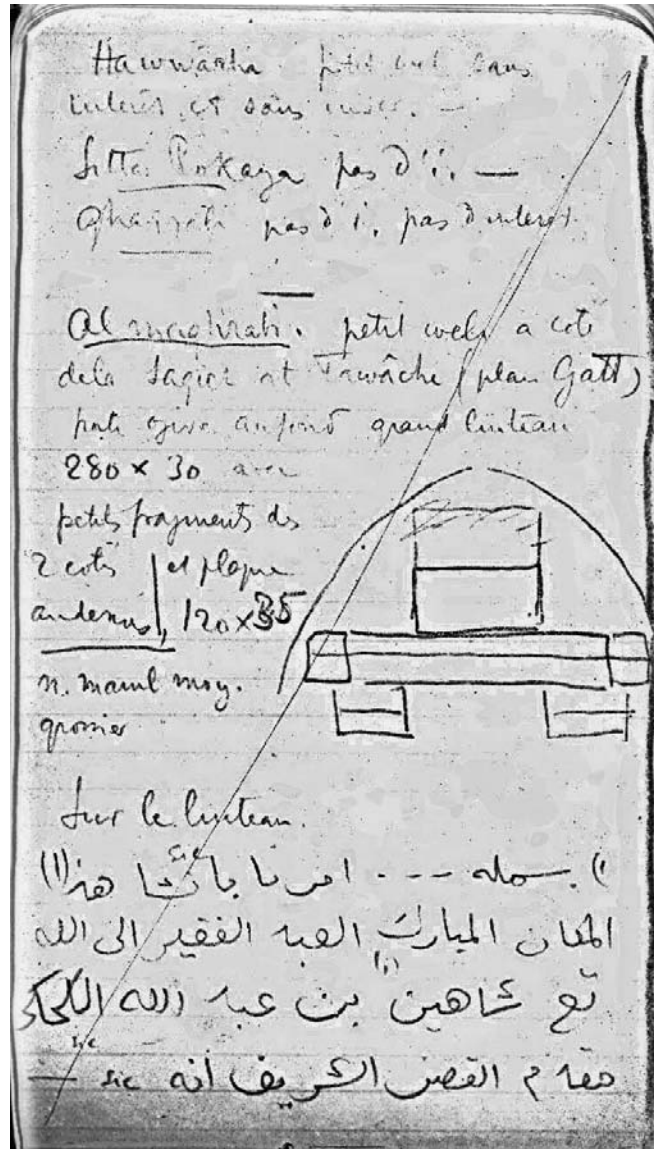 Hawwâcha petit wel sans
intérêt et sans inscr. —
Sitta Rokaya pas d'i. —
pas d i. pas d interet
Al maghrabi. petit weli a coté
de la at Tawâche (plan Gatt)
porte ogive au fond grand linteau
280 × 30 avec
petits fragments des
2 cotés et plaque
au dessus, 120 × 35
n. maml moy.
grossier
Sur le linteau.
sic
١) بسمله --- امر نا بانشا هذا (١)
المكان المبارك العبد الفقير الى الله
(١)
تع شاهين بن عبد الله
sic
مقدم القصر الشريف انه sic —